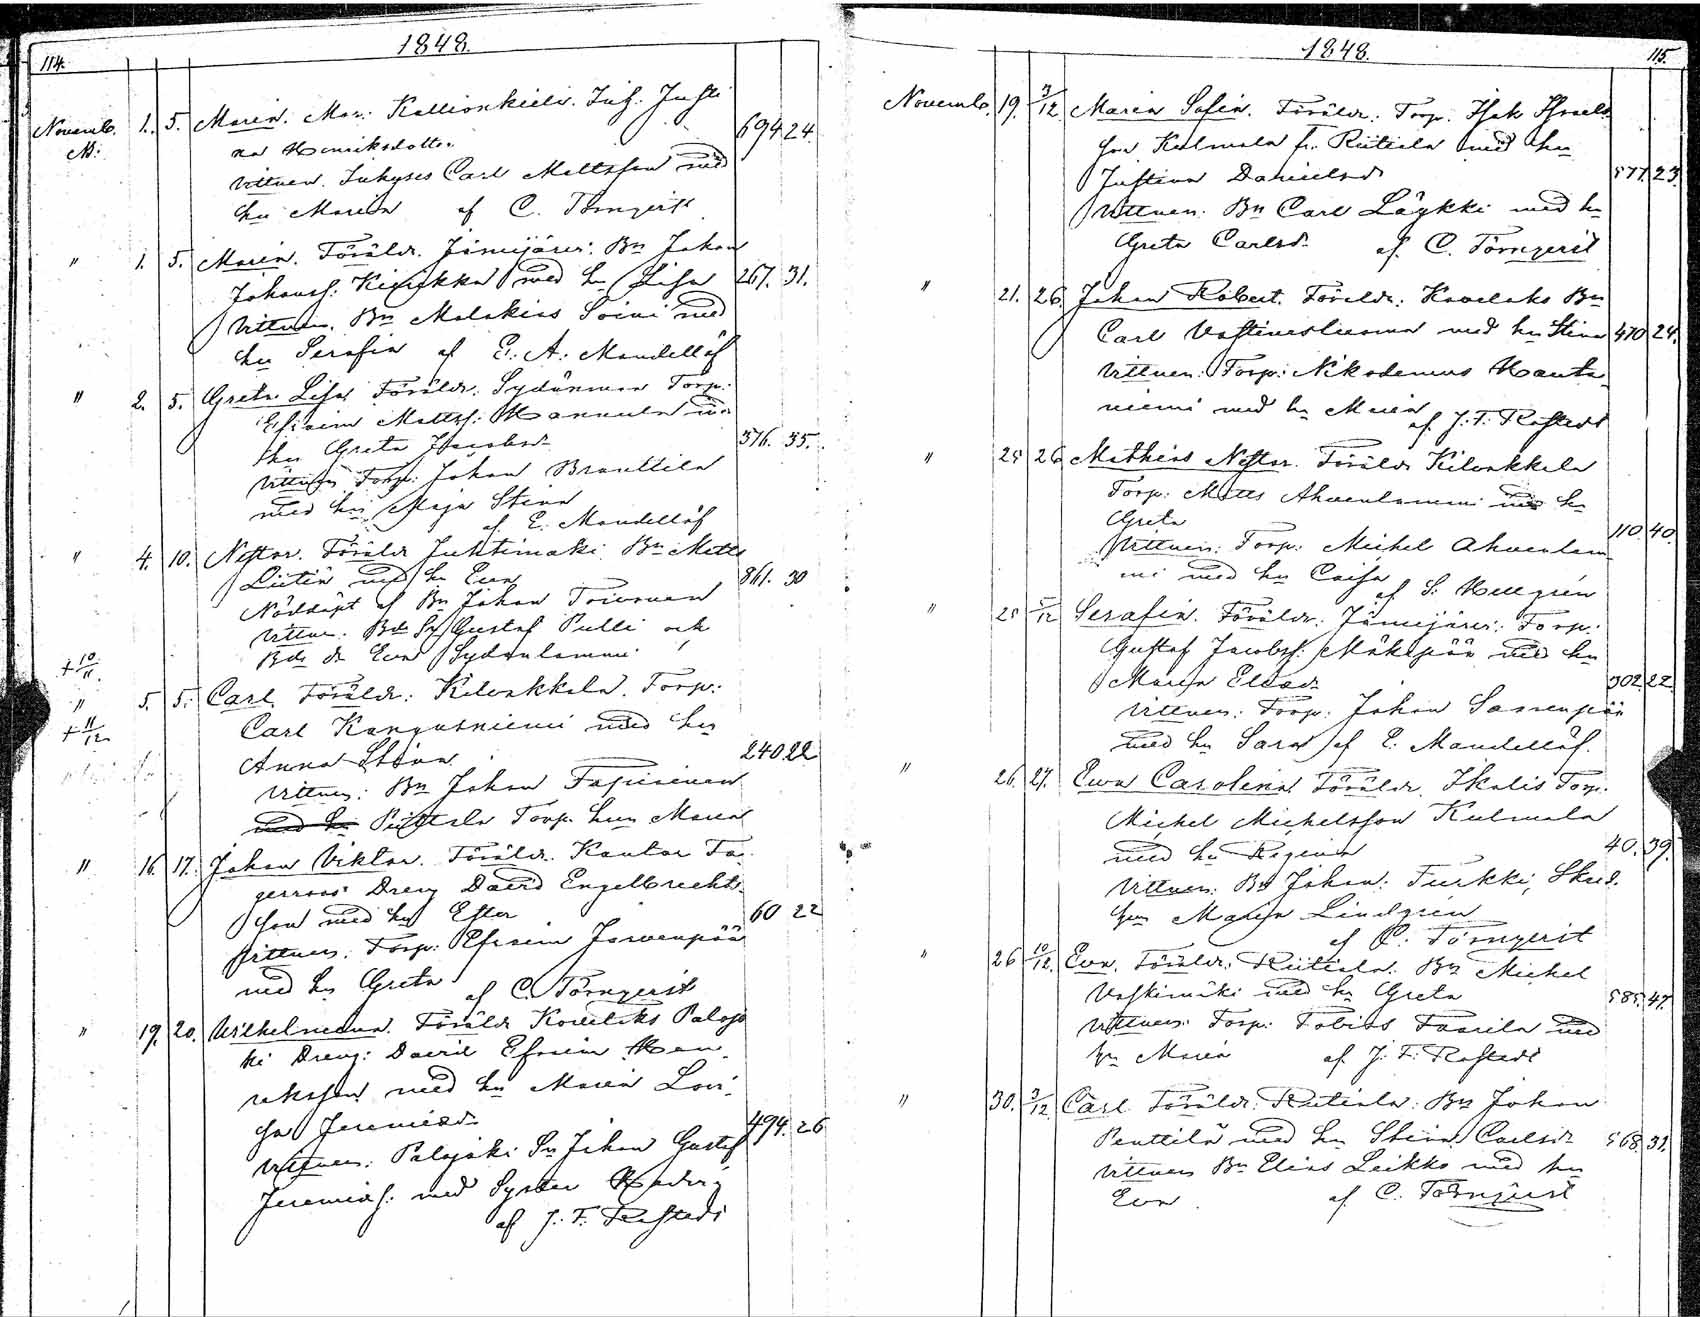 114.
1848.
Novemb. 1. 5. Maria. Mor: Kallionkieli Inh. Justi
na Henriksdotter
694 24.
Vittnen. Inhyses Carl Mattsson med
hu Maria af C. Törnqvist
" 1. 5. Maria. Föräldr. Jämijärvi: Bn Johan
Johanss: Kiwikka med hu Lisa 267. 31.
Vittnen. Bn Malakias Soini med
hu Serafia af E: A: Mandellöf
" 2. 5. Greta Lisa Föräldr. Sydänmaa Torp:
Efraim Mattss: Hannula med
hu Greta Jacobsdr 376. 35.
Vittnen Torp: Johan Branttila
med hu Maja Stina
af E. Mandellöf
" 4. 10. Nestor. Föräldr Juhtimäki Bn Matts
med hu Ewa 861. 30
Nöddöpt af Bn Johan Toivonen
Vittne: Bde Sn Gustaf Pulli och
Bde dr Ewa Sydänlammi
+ 10/11.
" 5. 5. Carl. Föräldr: Kilvakkala. Torp:
+ 11/12
Carl Kangasniemi med hu
Anna Stina 240 22
Vittnen: Bn Johan
med hu Torp. hu Maria
" 16. 17. Johan Viktor. Föräldr. Kantor Fa
gerroos' Dreng David Engelbrechts
son med hu Ester 60 22
Vittnen: Torp: Efraim Jarvenpää
med hu Greta af C. Törnqvist
" 19. 20. Wilhelmina. Föräldr Kovelaks Palojo
ki Dreng: David Efraim Hen
riksson med hu Maria Lovi:
sa Jeremiedr
494. 26
Vittnen: Palojoki Sn Johan Gustaf
Jeremias: med Syster Hedvig
af J. F. Rostedt
1848.
115.
Novemb. 19. 3/12 Maria Sofia. Föräldr: Torp. Isak Israels
son Kulmala fr. Riitiala med hu
Justina Danielsdr 577. 23.
Vittnen: Bn Carl Läykki med h
Greta Carlsdr af C. Törnqvist
" 21. 26. Johan Robert. Föräldr: Kovelaks Bn
Carl med hu Stina 470 24.
Vittnen: Torp: Nikodemus Hauta
niemi med hu Maria
af J. F. Rostedt
" 25 26 Mathias Nestor. Föräldr Kilvakkala
Torp: Matts Ahvenlammi med h
Greta 110. 40.
Vittnen: Torp: Michel Ahvenlam
mi med hu Caisa
af S. Hellgrén
" 25 5/12 Serafia. Föräldr: Jämijärvi: Torp:
Gustaf Jacobss: Mäkipää med hu
Maria Eliadr 302. 22.
Vittnen: Torp: Johan Saarenpää
med hu Sara af E: Mandellöf.
" 26. 27. Ewa Carolina. Föräldr. Ikalis Torp.
Michel Michelsson Kulmala
med hu Regina 40. 39.
Vittnen: Bn Johan: Turkki, Skred.
hu Maria Lindgrén
af C: Törnqvist
" 26 10/12. Ewa. Föräldr: Riitiala: Bn Michel
Vaskimäki med hu Greta 585. 47.
Vittnen: Torp: Tobias Taurila med
hu Maria af J: F: Rostedt
" 30. 3/12 Carl Föräldr: Riitiala: Bn Johan
Penttilä med hu Stina Carlsdr 568. 31.
Vittnen Bn Elias Leikko med hu
Ewa af C. Törnqvist